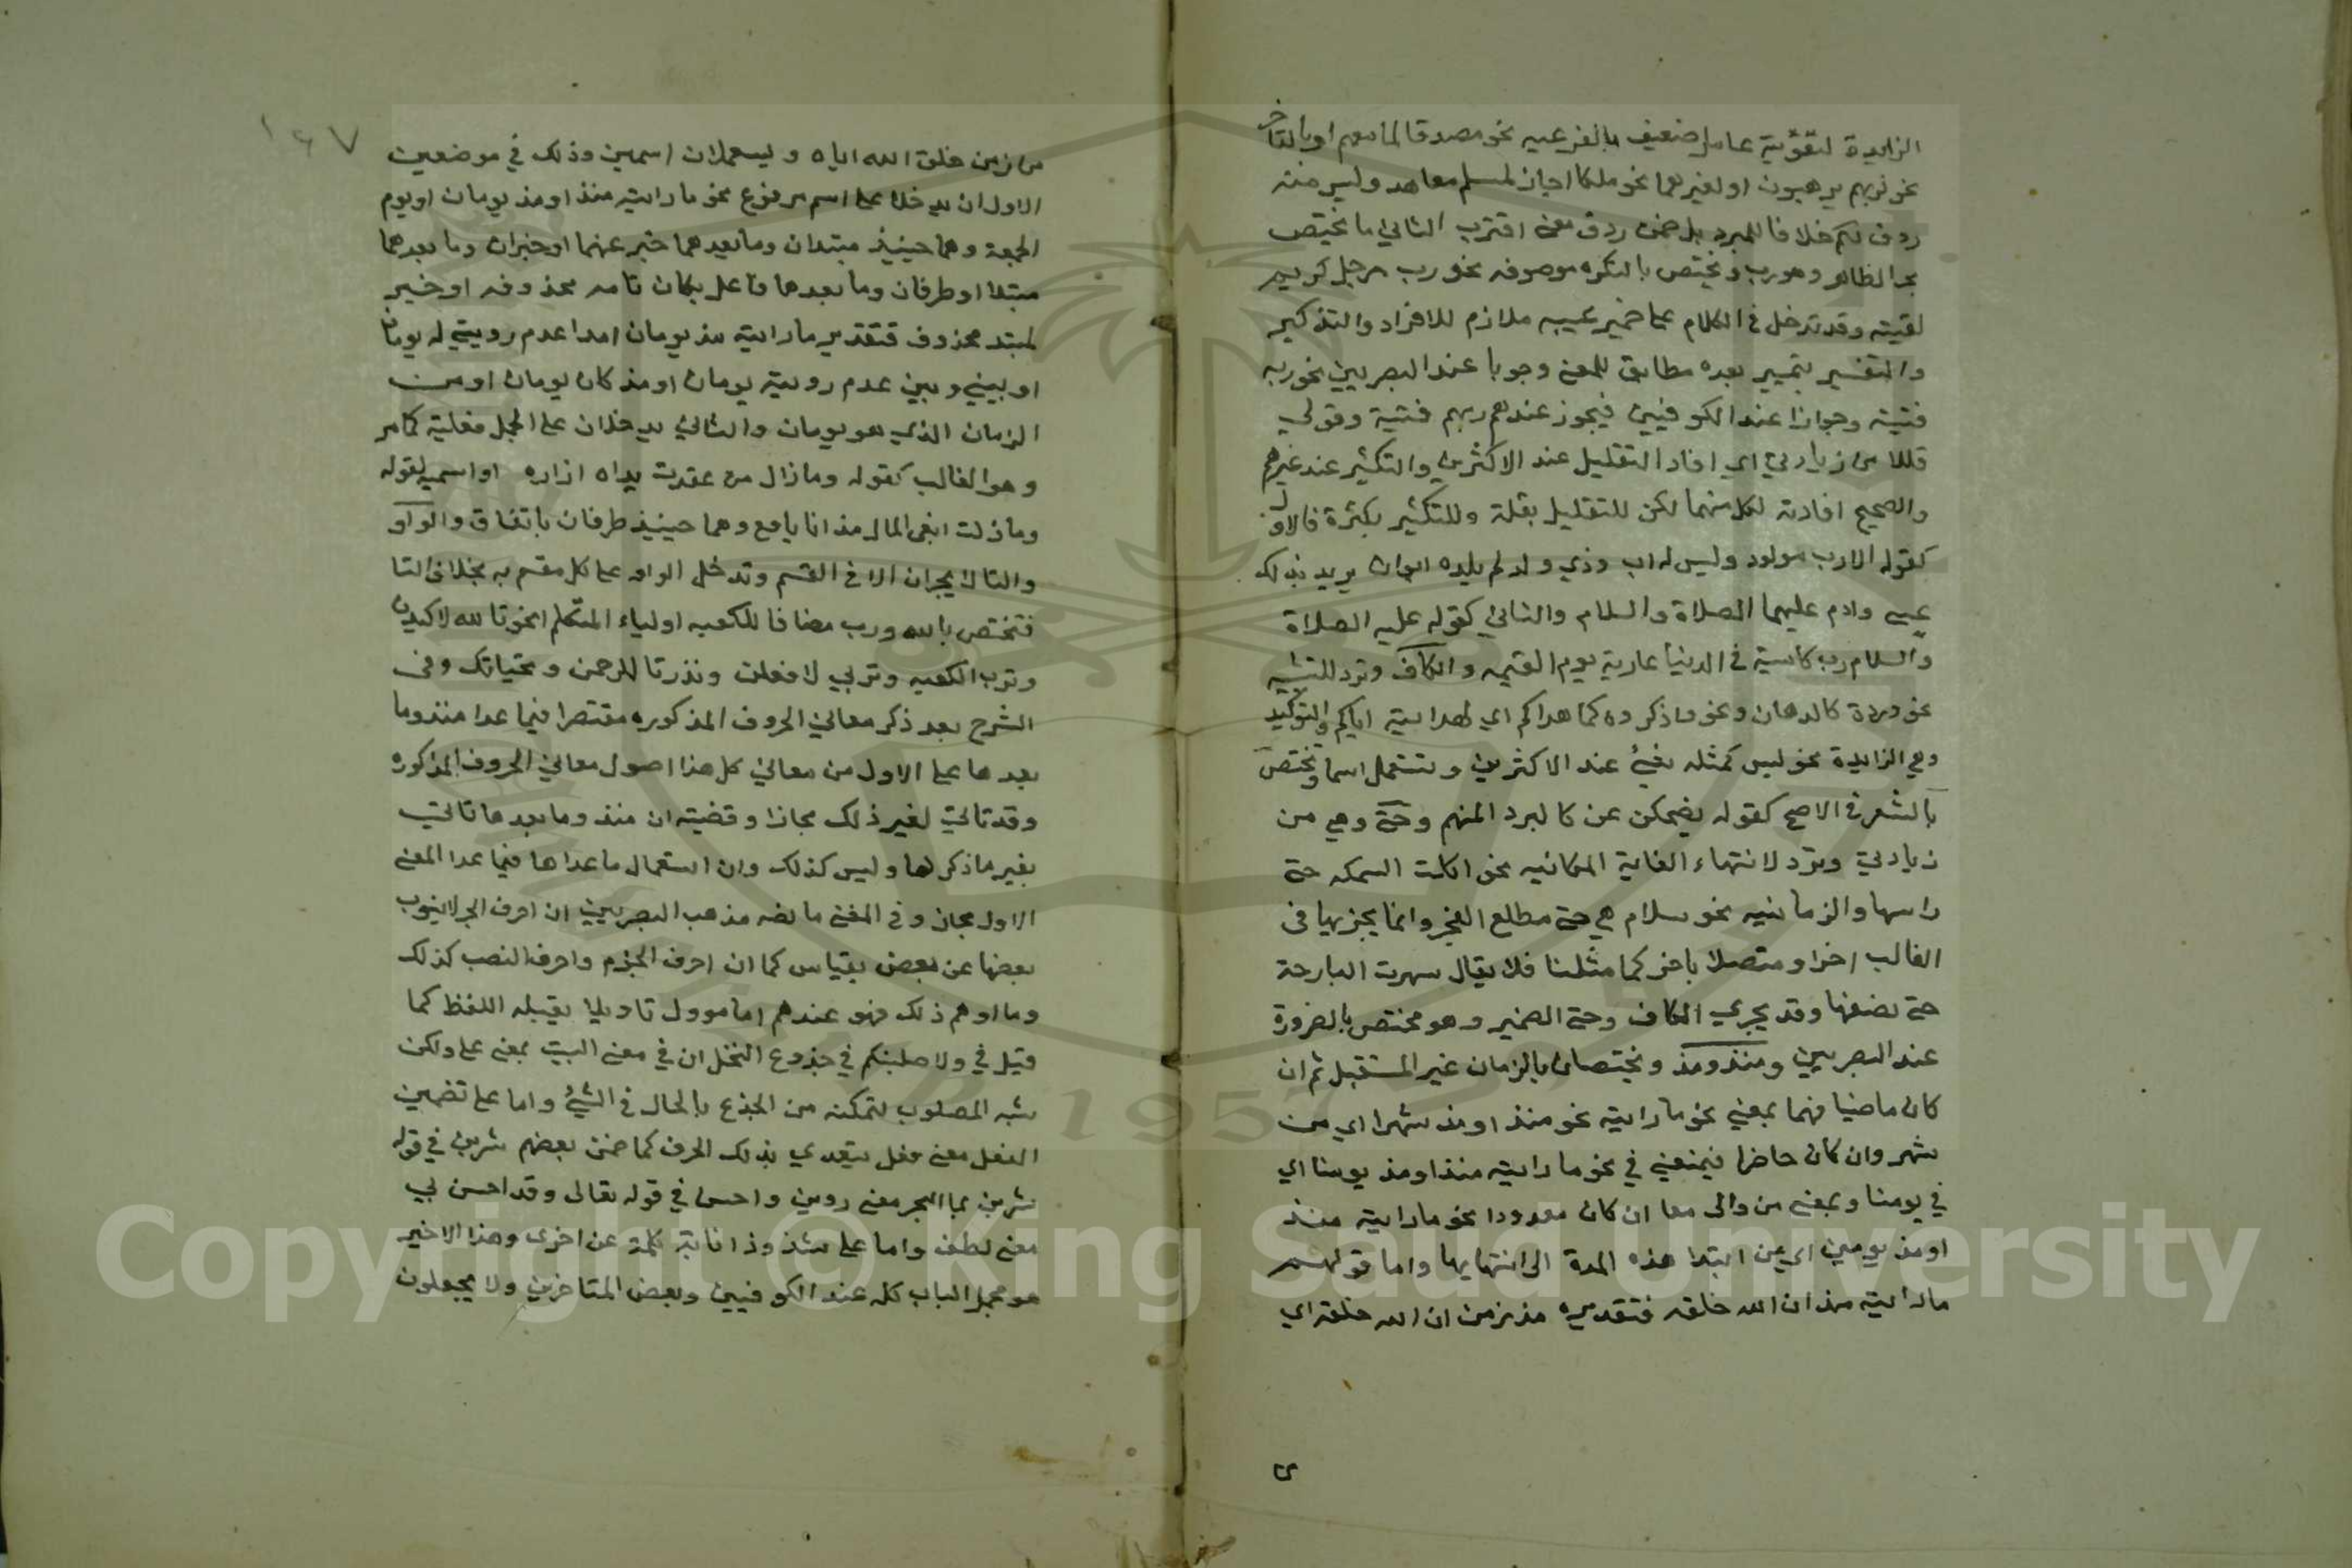 الزايدة لتقوية عامل ضعيف بالفرعيه نحو مصدقا لما معهم او بالتاخر
نحو لربهم يرهبون او لغيرهما نحو ملكا اجار لمسلم معاهد وليس منه
ردف لكم خلافا للمبرد بل ضمن ردف معنى اقترب الثاني ما يختص
بجر الظاهر وهو رب ويختص بالنكره موصوفه نحو رب رجل كريم
لقيته وقد تدخل في الكلام على ضمير غيبه ملازم للافراد والتذكير
والتفسير بتمييز بعده مطابق للمعنى وجوبا عند البصريين نحو ربه
فتية وجوازا عند الكوفيين فيجوز عندهم ربهم فتية وقولي
قللا من زيادتي اي افاد التقليل عند الاكثرين والتكثير عند غيرهم
والصحيح افادته لكل منهما لكن للتقليل بقلة وللتكثير بكثرة فالاول
كقوله الا رب مولود وليس له اب وذي ولد لم يلده ابوان يريد بذلك
عيسى وادم عليهما الصلاة والسلام والثاني كقوله عليه الصلاة
والسلام رب كاسية في الدنيا عارية يوم القيمه والكاف وترد للتشبيه
نحو وردة كالدهان ونحو واذكروه كما هداكم اي لهدايته اياكم والتوكيد
وهي الزايدة نحو ليس كمثله شيء عند الاكثرين وتستعمل اسما وتختص
بالشعر في الاصح كقوله يضحكن عن كالبرد المنهم وحتى وهي من
زيادتي وترد لانتهاء الغاية المكانيه نحو اكلت السمكه حتى
راسها والزمانيه نحو سلام هي حتى مطلع الفجر وانما يجر بها في
الغالب اخر او متصلا باخر كما مثلنا فلا يقال سهرت البارحة
حتى نصفها وقد يجري الكاف وحتى الضمير وهو مختص بالضرورة
عند البصريين ومنذ ومذ ويختصان بالزمان غير المستقبل ثم ان
كان ماضيا فهما بمعنى نحو ما رايته نحو منذ او مذ شهر اي من
شهر وان كان حاضرا فبمعنى في نحو ما رايته منذ او مذ يومنا اي
في يومنا وبمعنى من والى معا ان كان معدودا نحو ما رايته منذ
او مذ يومين اي من ابتدا هذه المدة الى انتهايها واما قولهم
ما رايته مذ ان الله خلقه فتقديره مذ زمن ان الله خلقه اي
من زمن خلق الله اياه ويستعملان اسمين وذلك في موضعين
الاول ان يدخلا على اسم مرفوع نحو ما رايته منذ او مذ يومان او يوم
الجمعة وهما حينيذ مبتدان وما بعدهما خبر عنهما او خبران وما بعدهما
مبتدا او ظرفان وما بعدها فاعل بكان تامه محذوفه او خبر
لمبتد محذوف فتقدير ما رايته مذ يومان امدا عدم رويتي له يومان
او بيني وبين عدم رويته يومان او مذ كان يومان او من
الزمان الذي هو يومان والثاني يدخلان على الجمل فعلية كما مر
وهو الغالب كقوله وما زال من عقدت يداه ازاره او اسميه كقوله
وما زلت ابغي المال مذ انا يافع وهما حينيذ ظرفان باتفاق والواو
والتا لا يجران الا في القسم وتدخل الواو على كل مقسم به بخلاف التا
فتختص بالله ورب مضافا للكعبه او لياء المتكلم نحو تالله لاكيدن
وترب الكعبه وتربي لافعلن وندر تالرحمن وتحياتك وفى
الشرح بعد ذكر معاني الحروف المذكوره مقتصرا فيما عدا منذ وما
بعدها على الاول من معاني كل هذا اصول معاني الحروف المذكوره
وقد تاتي لغير ذلك مجازا وقضيته ان منذ وما بعدها تاتي
بغير ما ذكر لها وليس كذلك وان استعمال ما عداها فيما عدا المعنى
الاول مجاز وفي المغني ما نصه مذهب البصريين ان احرف الجر لا ينوب
بعضها عن بعض بقياس كما ان احرف الجزم واحرف النصب كذلك
وما اوهم ذلك فهو عندهم اما موول تاويلا يقبله اللفظ كما
قيل في ولاصلبنكم في جذوع النخل ان في معنى البيت بمعنى على ولكن
شبه المصلوب لتمكنه من الجذع بالحال في الشيء واما على تضمين
الفعل معنى فعل يتعدي بذلك الحرف كما ضمن بعضهم شربن في قوله
شربن بما البحر معنى روين واحسن في قوله تعالى وقد احسن بي
معنى لطف واما على شذوذ انابة كلمة عن اخرى وهذا الاخير
هو مجمل الباب كله عند الكوفيين وبعض المتاخرين ولا يجعلون
١٤٧
Copyright © King Saud University
1957